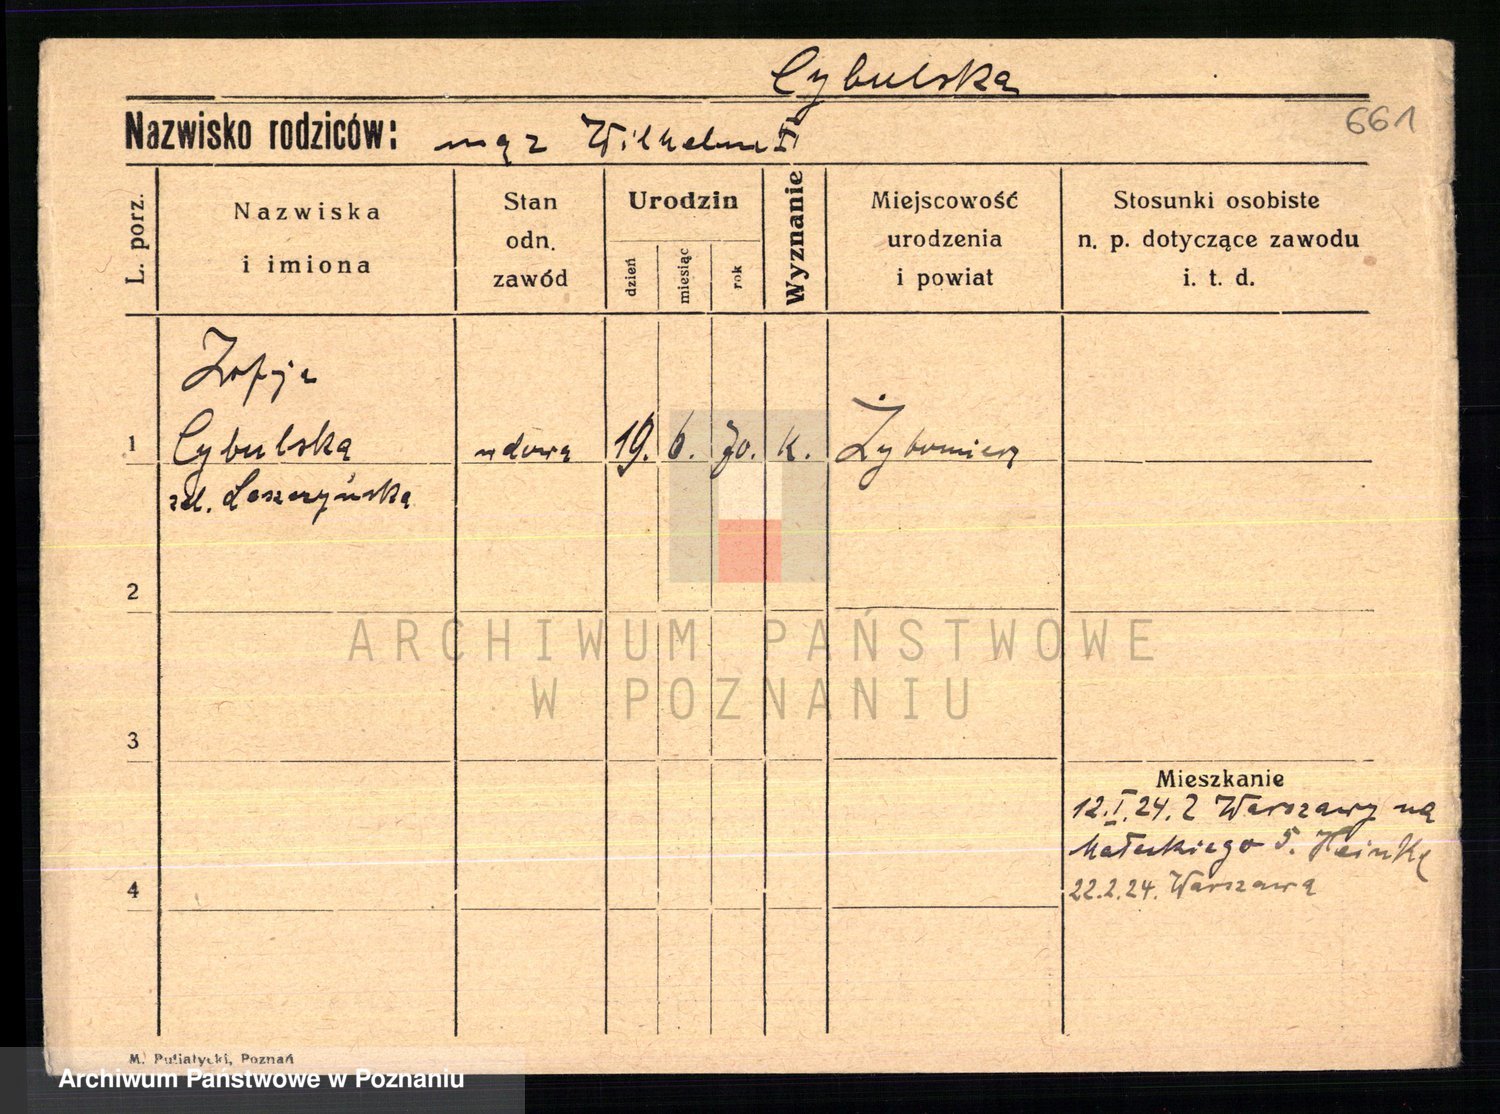 Cybulska
661
Nazwisko rodziców: mąż Wilhelm II
L. porz.
Nazwiska
i imiona
Stan
odn.
zawód
Urodzin
dzień
miesiąc
rok
Wyznanie
Miejscowość
urodzenia
i powiat
Stosunki osobiste
n. p. dotyczące zawodu
i. t. d.
Zofja
1 Cybulska wdowa 19. 6. 70. k.
zd.
2
ARCHIWUM PAŃSTWOWE
W POZNANIU
3
Mieszkanie
12.I.24. Z Warszawy na
Małeckiego 5.
4
22.2.24. Warszawa
M. Putiatycki, Poznań
Archiwum Państwowe w Poznaniu